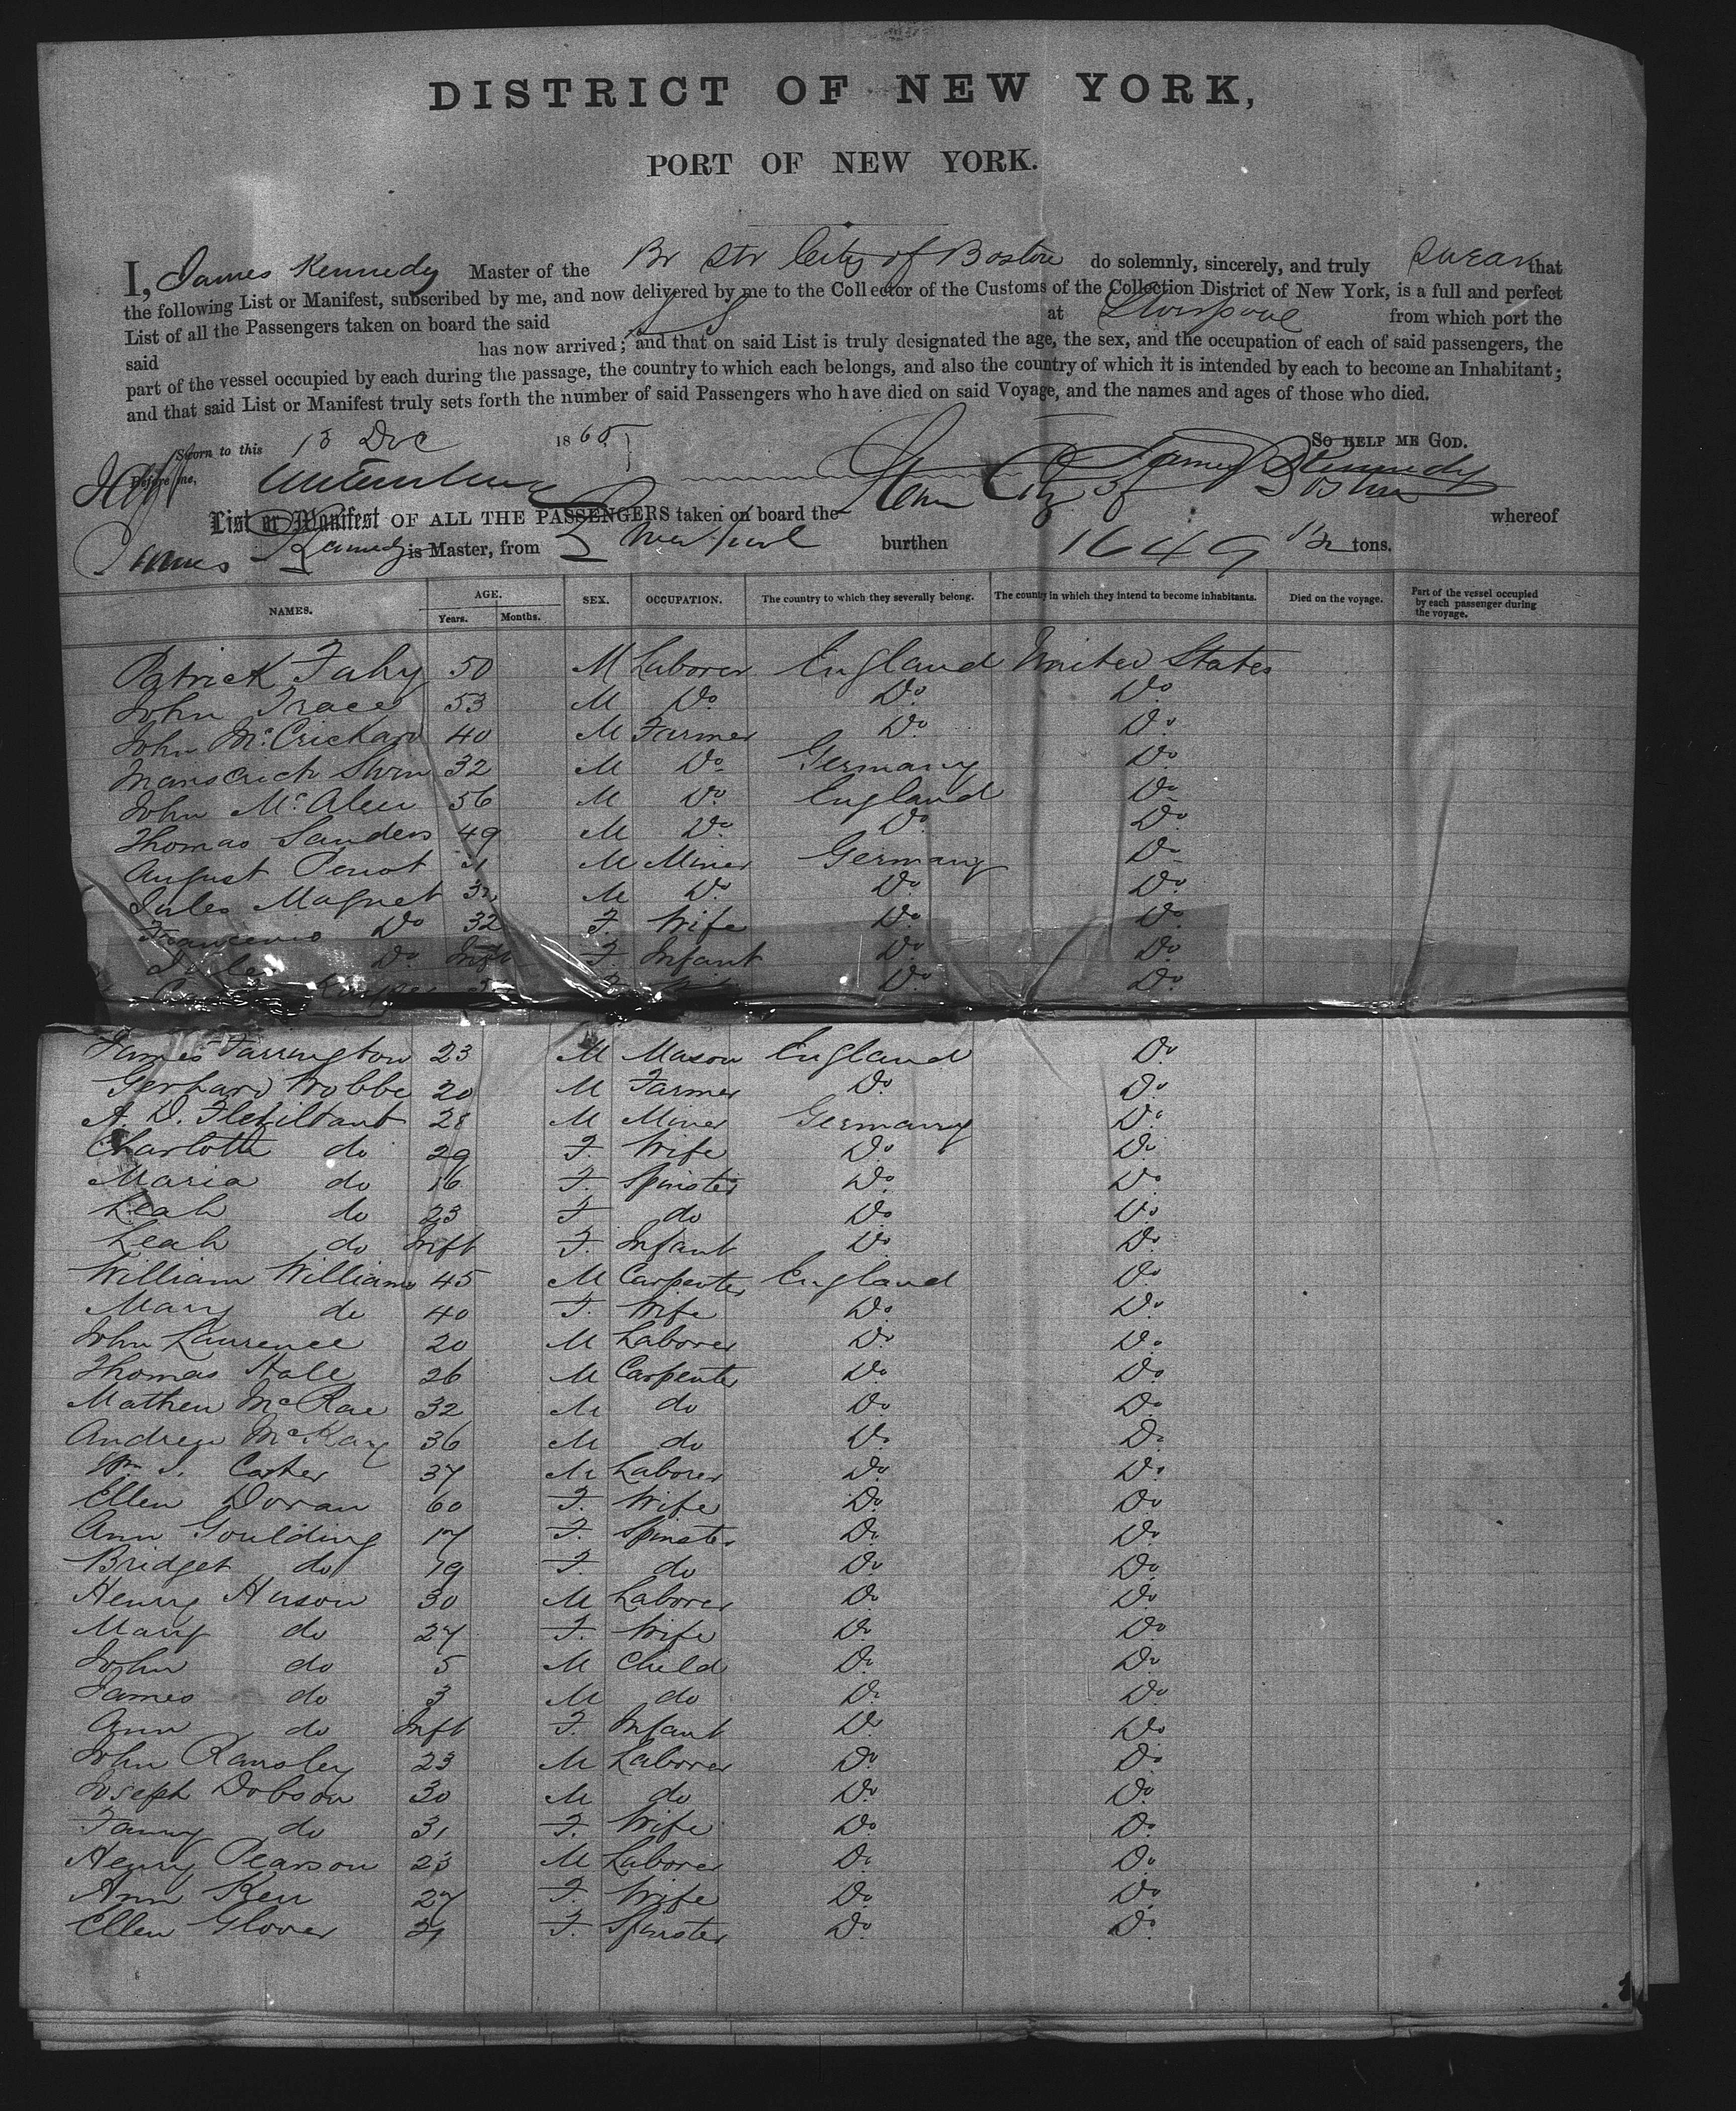 DISTRICT OF NEW YORK,
PORT OF NEW YORK.
I, James Kennedy Master of the Br Str City of Boston do solemnly, sincerely, and truly swear that
the following List or Manifest, subscribed by me, and now delivered by me to the Collector of the Customs of the Collection District of New York, is a full and perfect
List of all the Passengers taken on board the said at Liverpool from which port the
said has now arrived; and that on said List is truly designated the age, the sex, and the occupation of each of said passengers, the
part of the vessel occupied by each during the passage, the country to which each belongs, and also the country of which it is intended by each to become an Inhabitant;
and that said List or Manifest truly sets forth the number of said Passengers who have died on said Voyage, and the names and ages of those who died.
Sworn to this 18 Dec 1865 So help me God.
Before me, James Kennedy
List or Manifest OF ALL THE PASSENGERS taken on board the Steam City of Boston whereof
James Kennedy is Master, from Liverpool burthen 1649 tons.
NAMES. AGE. Years. Months. SEX. OCCUPATION. The country to which they severally belong. The country in which they intend to become inhabitants. Died on the voyage. Part of the vessel occupied by each passenger during the voyage.
Patrick Fahy 50 M Laborer England United States
John Trace 53 M Do Do Do
John McCrickard 40 M Farmer Do Do
32 M Do Germany Do
John McAleer 56 M Do England Do
Thomas Sanders 49 M Do Do Do
August Penot M Miner Germany Do
Jules Magnet M Do Do Do
Do 32 F. Wife Do Do
Jules Do Inft F. Infant Do Do
F Do Do
James Farrington 23 M Mason England Do
Gerhard Wobbe 20 M Farmer Do Do
A. D. 28 M Miner Germany Do
Charlotte do 29 F. Wife Do Do
Maria do 16 F. Spinster Do Do
Leah do 23 F do Do Do
Leah do Inft F. Infant Do Do
William Williams 45 M Carpenter England Do
Mary do 40 F. Wife Do Do
John Laurence 20 M Laborer Do Do
Thomas Hale 26 M Carpenter Do Do
Mathew McRae 32 M do Do Do
Andrew McKay 36 M do Do Do
Wm J. Carter 37 M Laborer Do Do
Ellen Doran 60 F. Wife Do Do
Ann Goulding 17 F. Spinster Do Do
Bridget do 19 F. do Do Do
Henry Huson 30 M Laborer Do Do
Mary do 27 F. Wife Do Do
John do 5 M Child Do Do
James do 3 M do Do Do
Ann do Inft F. Infant Do Do
John Ransley 23 M Laborer Do Do
Joseph Dobson 30 M do Do Do
Fanny do 31 F. Wife Do Do
Henry Pearson 23 M Laborer Do Do
Ann Kerr 27 F. Wife Do Do
Ellen Glover 21 F Spinster Do Do